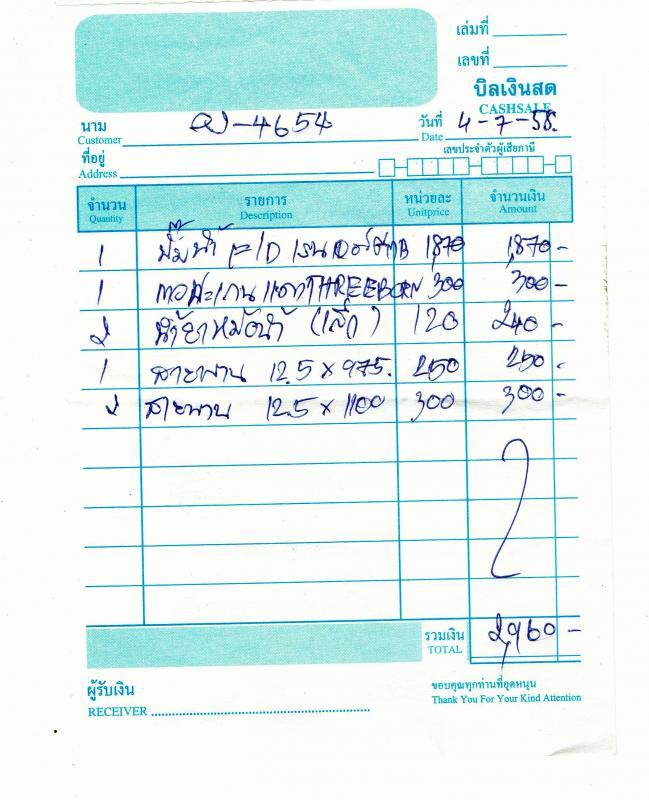 เล่มที่
เลขที่
บิลเงินสด
CASHSALE
นาม
Customer
ผว-4654
วันที่
Date
4-7-58.
ที่อยู่
Address
เลขประจำตัวผู้เสียภาษี
จำนวน รายการ หน่วยละ จำนวนเงิน
Quantity Description Unitprice Amount
1 ปั๊มน้ำ 1,870 1,870-
1 THREEBORN 300 300-
2 น้ำยาหม้อน้ำ 120 240-
1 สายพาน 12.5 x 975. 250 250-
2 สายพาน 12.5 x 1100 300 300-
รวมเงิน 2,960-
TOTAL
ผู้รับเงิน
RECEIVER
ขอบคุณทุกท่านที่อุดหนุน
Thank You For Your Kind Attention